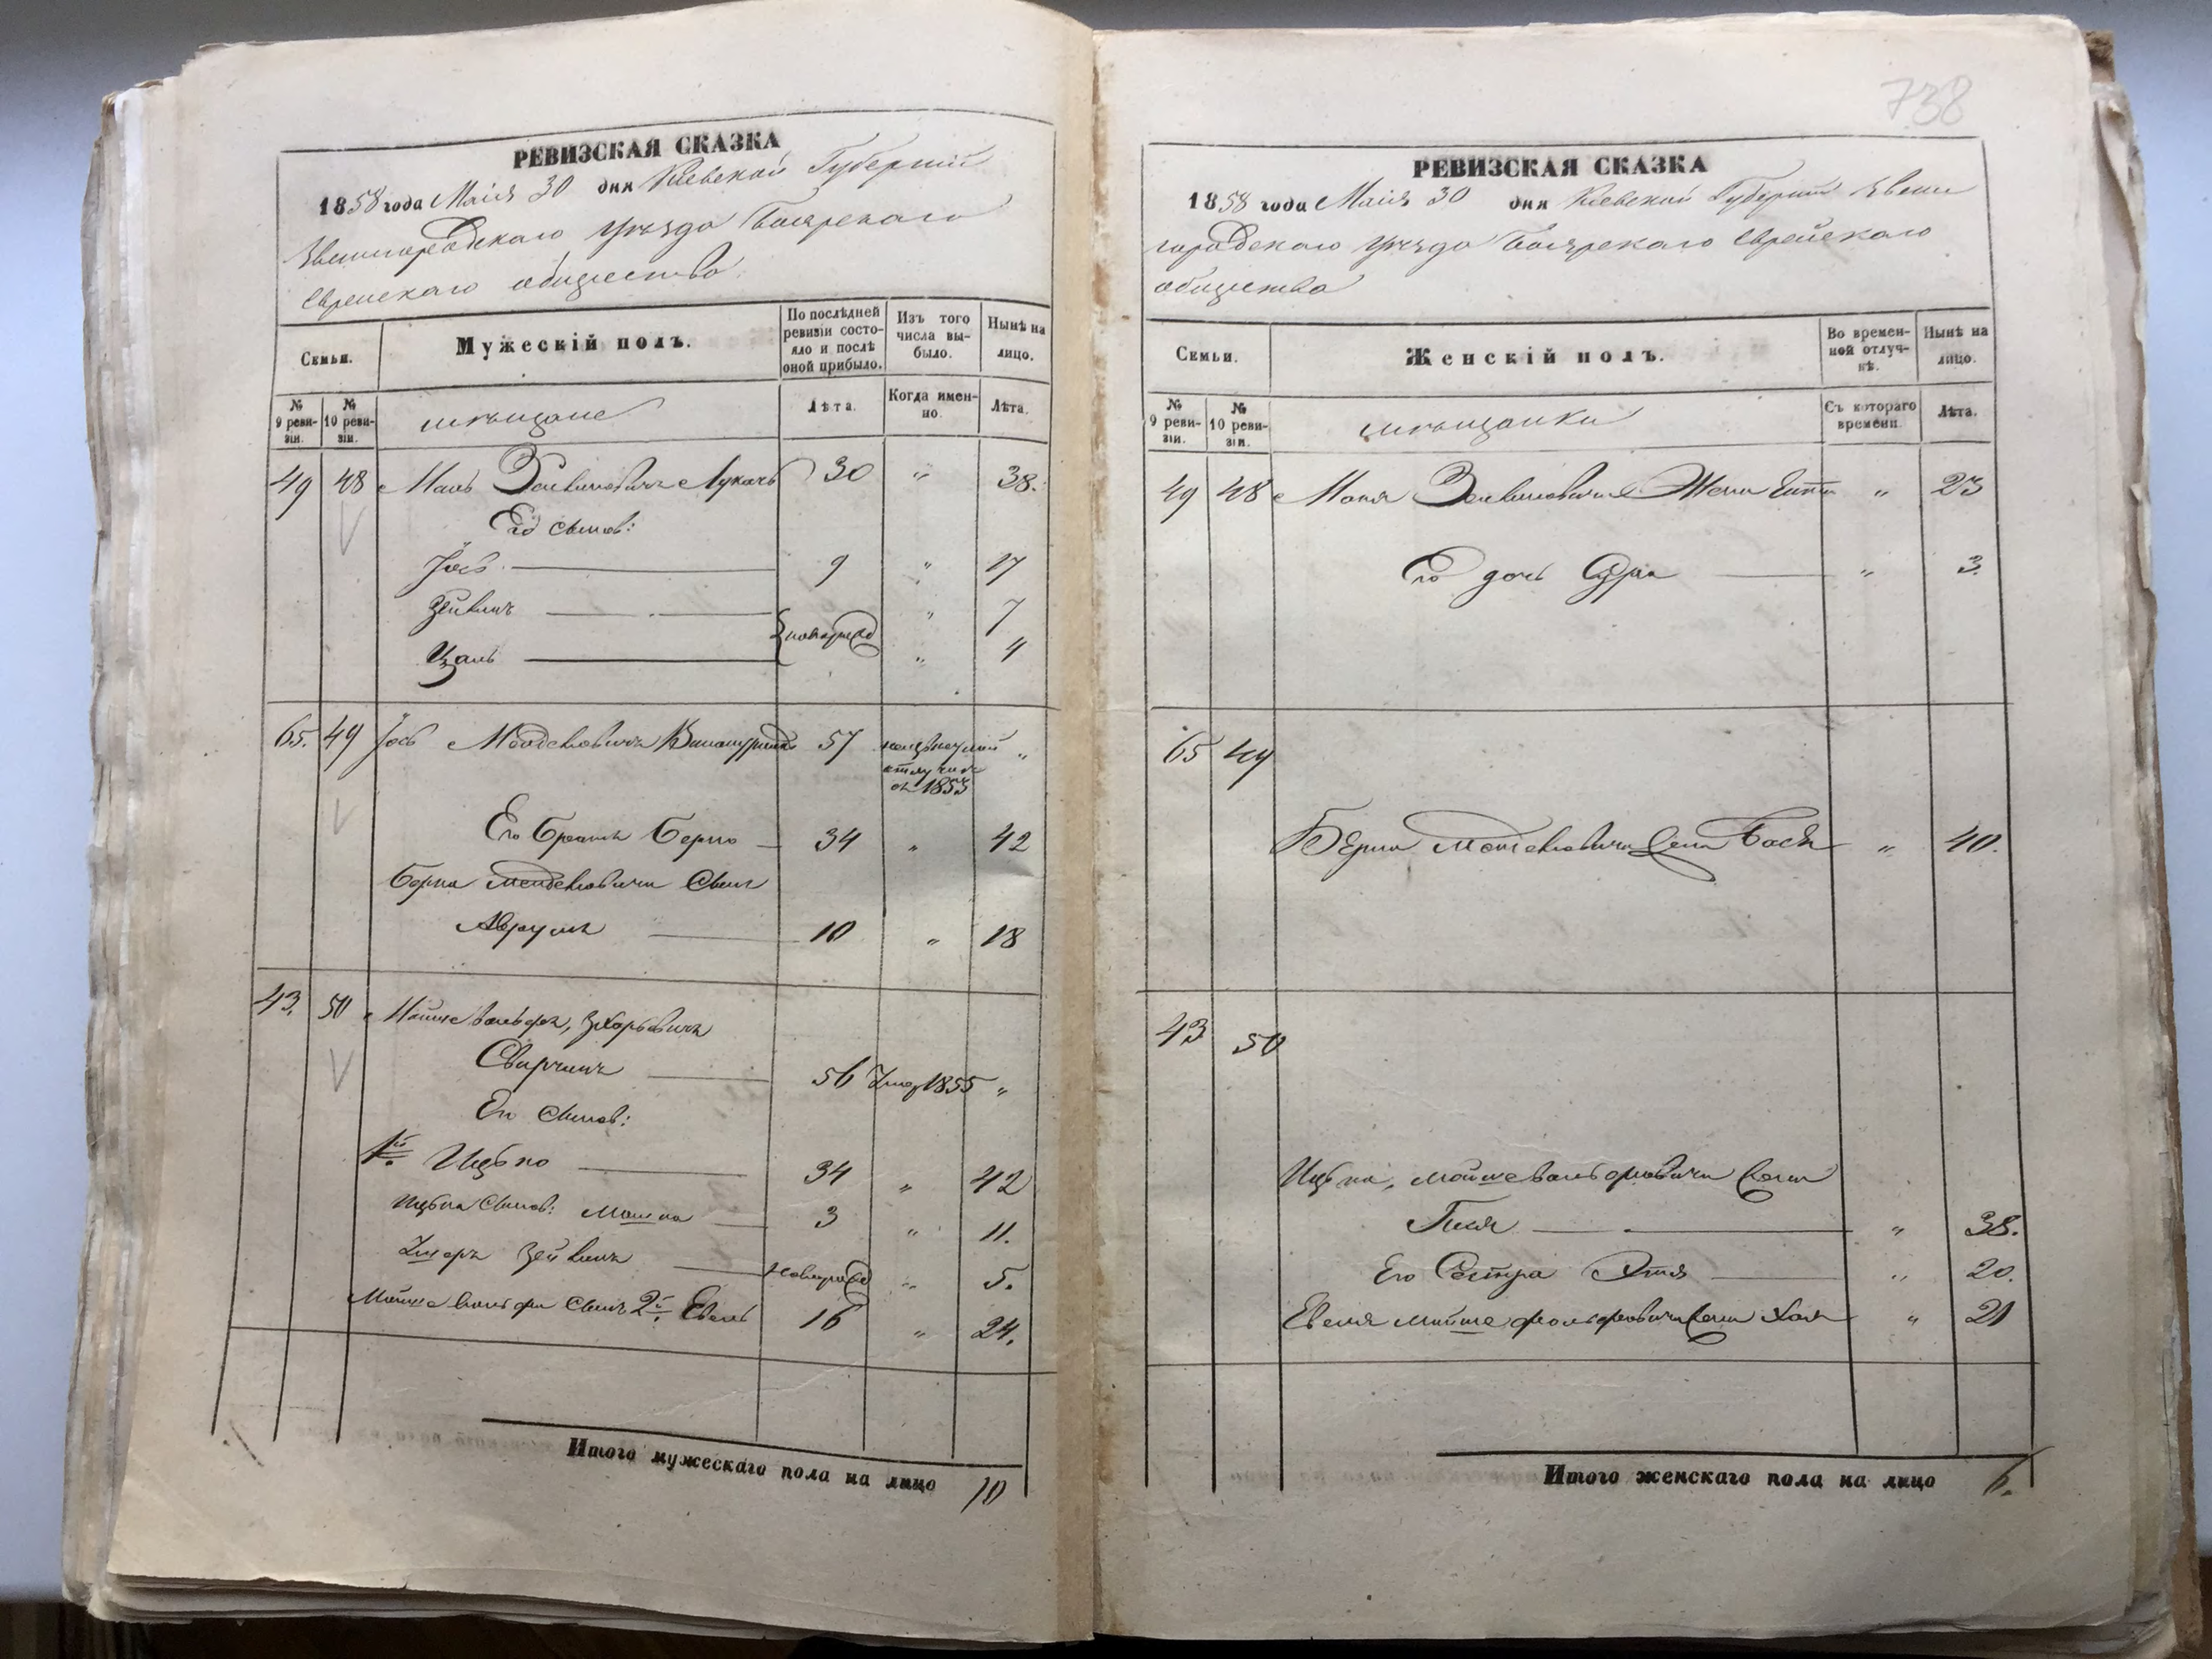 РЕВИЗСКАЯ СКАЗКА
1858 года Маія 30 дня Кіевской Губерніи
Звенигородскаго уѣзда Боярскаго
Еврейскаго общества
Семьи.
Мужескій полъ.
По послѣдней ревизіи состояло и послѣ оной прибыло.
Изъ того числа выбыло.
Нынѣ на лицо.
№ 9 ревизіи.
№ 10 ревизіи.
мѣщане
Лѣта.
Когда именно.
Лѣта.
49 48 Зейвиновичъ 30 " 38.
Его сынов:
Іось 9 " 17
Зейвинъ " 7
новорожд
" 4
65. 49 Іось 57 "
отлучкѣ
съ 1853
Его братъ Берко 34 " 42
Берка Мендельовича сынъ
Аврумъ 10 " 18
43. 50 Мойше Вольфъ,
56 Умер 1855 "
Его сынов:
1й. Ицько 34 " 42
Ицька сынов: Мошко 3 " 11.
Зейвинъ новорожд " 5.
Мойше Вольфа сынъ 2й. Евель 16 " 24.
Итого мужескаго пола на лицо 10
738
РЕВИЗСКАЯ СКАЗКА
1858 года Маія 30 дня Кіевской Губерніи Звени
городскаго уѣзда Боярскаго Еврейскаго
общества
Семьи.
Женскій полъ.
Во временной отлучкѣ.
Нынѣ на лицо.
№ 9 ревизіи.
№ 10 ревизіи.
мѣщанки
Съ котораго времени.
Лѣта.
49 48 Зейвиновича Жена " 23
Его дочь Сура " 3.
65 49
Берка Мендельовича жена Бася " 40.
43 50
Ицька, Мойше Вольфовича жена
" 38.
Его Сестра Этя " 20.
Евеля Мойше Фольфовича жена Хая " 21
Итого женскаго пола на лицо 6.